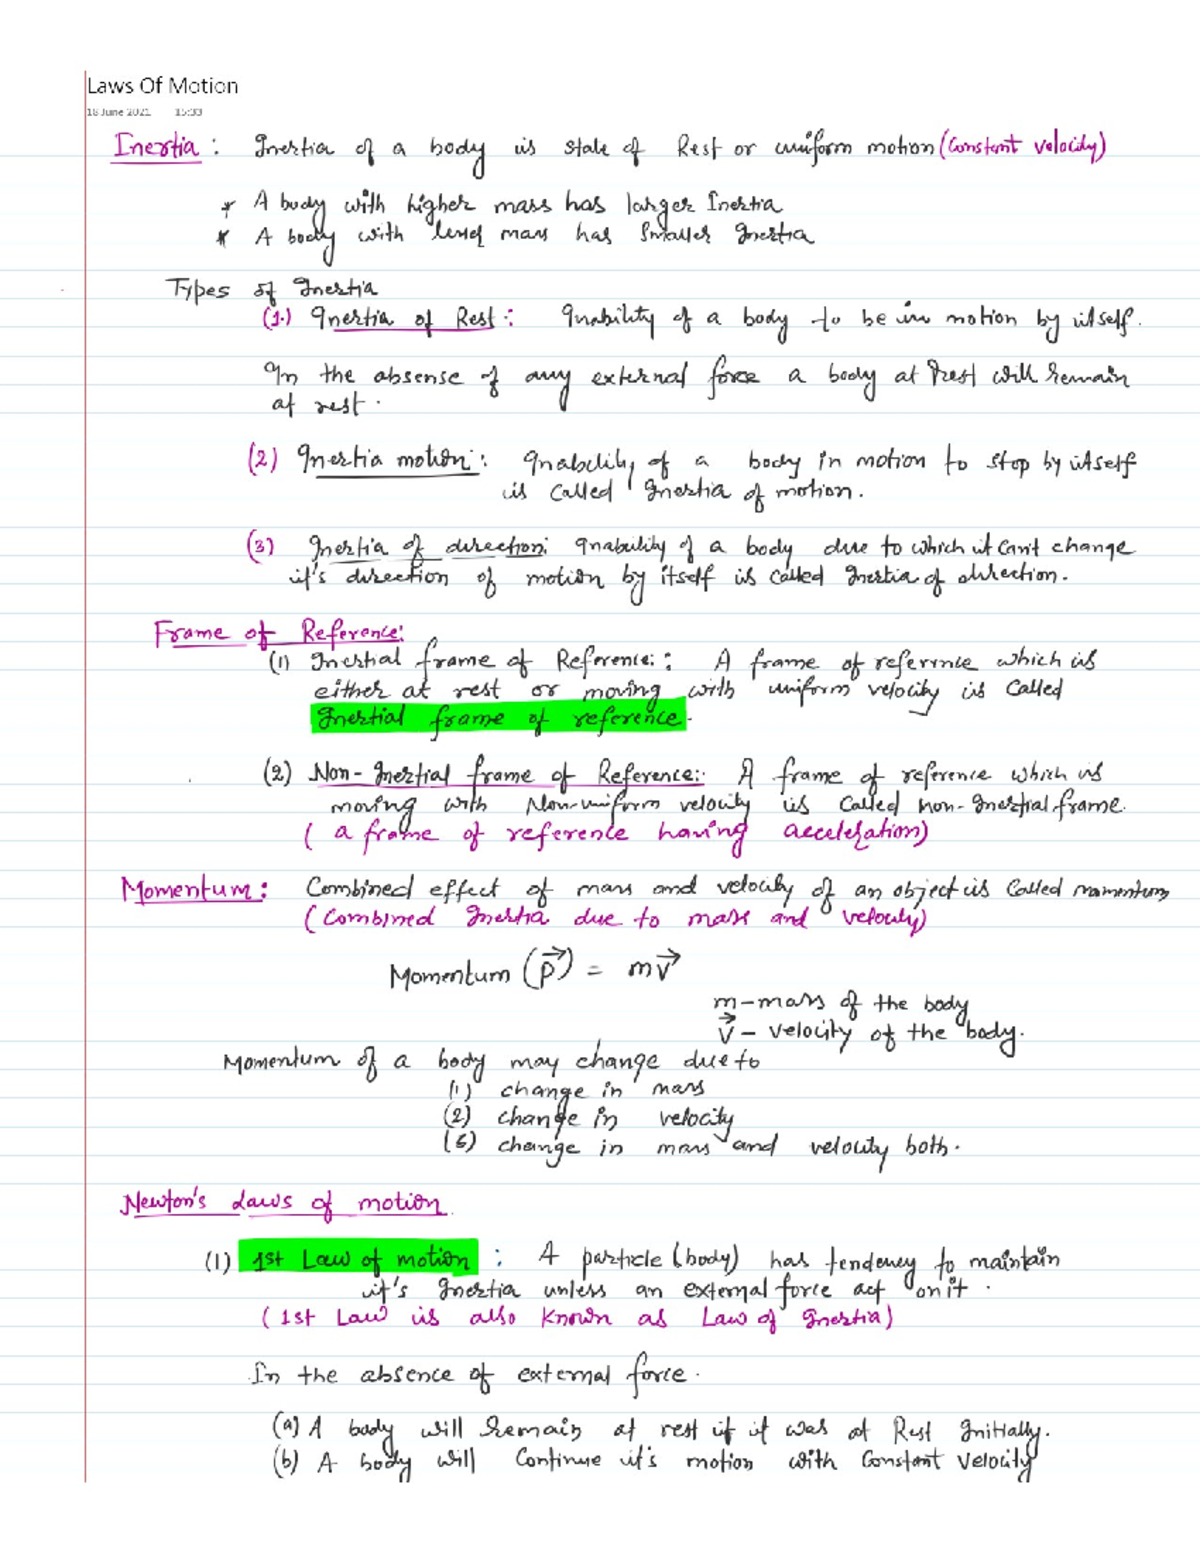 Laws Of Motion
18 June 2021 15:33
Inertia : Inertia of a body is state of Rest or uniform motion (Constant velocity)
* A body with higher mass has larger Inertia
* A body with lesser mass has Smaller Inertia
Types of Inertia
(1.) Inertia of Rest : Inability of a body to be in motion by itself.
In the absense of any external force a body at rest will remain
at rest.
(2) Inertia motion : Inability of a body in motion to stop by itself
is called Inertia of motion.
(3) Inertia of direction: Inability of a body due to which it can't change
it's direction of motion by itself is called Inertia of direction.
Frame of Reference:
(1) Inertial frame of Reference: : A frame of reference which is
either at rest or moving with uniform velocity is called
Inertial frame of reference.
(2) Non-Inertial frame of Reference:- A frame of reference which is
moving with Non-uniform velocity is called non-Inertial frame.
( a frame of reference having acceleration)
Momentum : Combined effect of mass and velocity of an object is called momentum
( Combined Inertia due to mass and velocity)
Momentum (p⃗) = mv⃗
m-mass of the body
v⃗ - velocity of the body.
Momentum of a body may change due to
(1) change in mass
(2) change in velocity
(3) change in mass and velocity both.
Newton's Laws of motion
(1) 1st Law of motion : A particle (body) has tendency to maintain
it's Inertia unless an external force act on it .
( 1st Law is also known as Law of Inertia)
In the absence of external force.
(a) A body will Remain at rest if it was at Rest Initially.
(b) A body will Continue it's motion with Constant Velocity